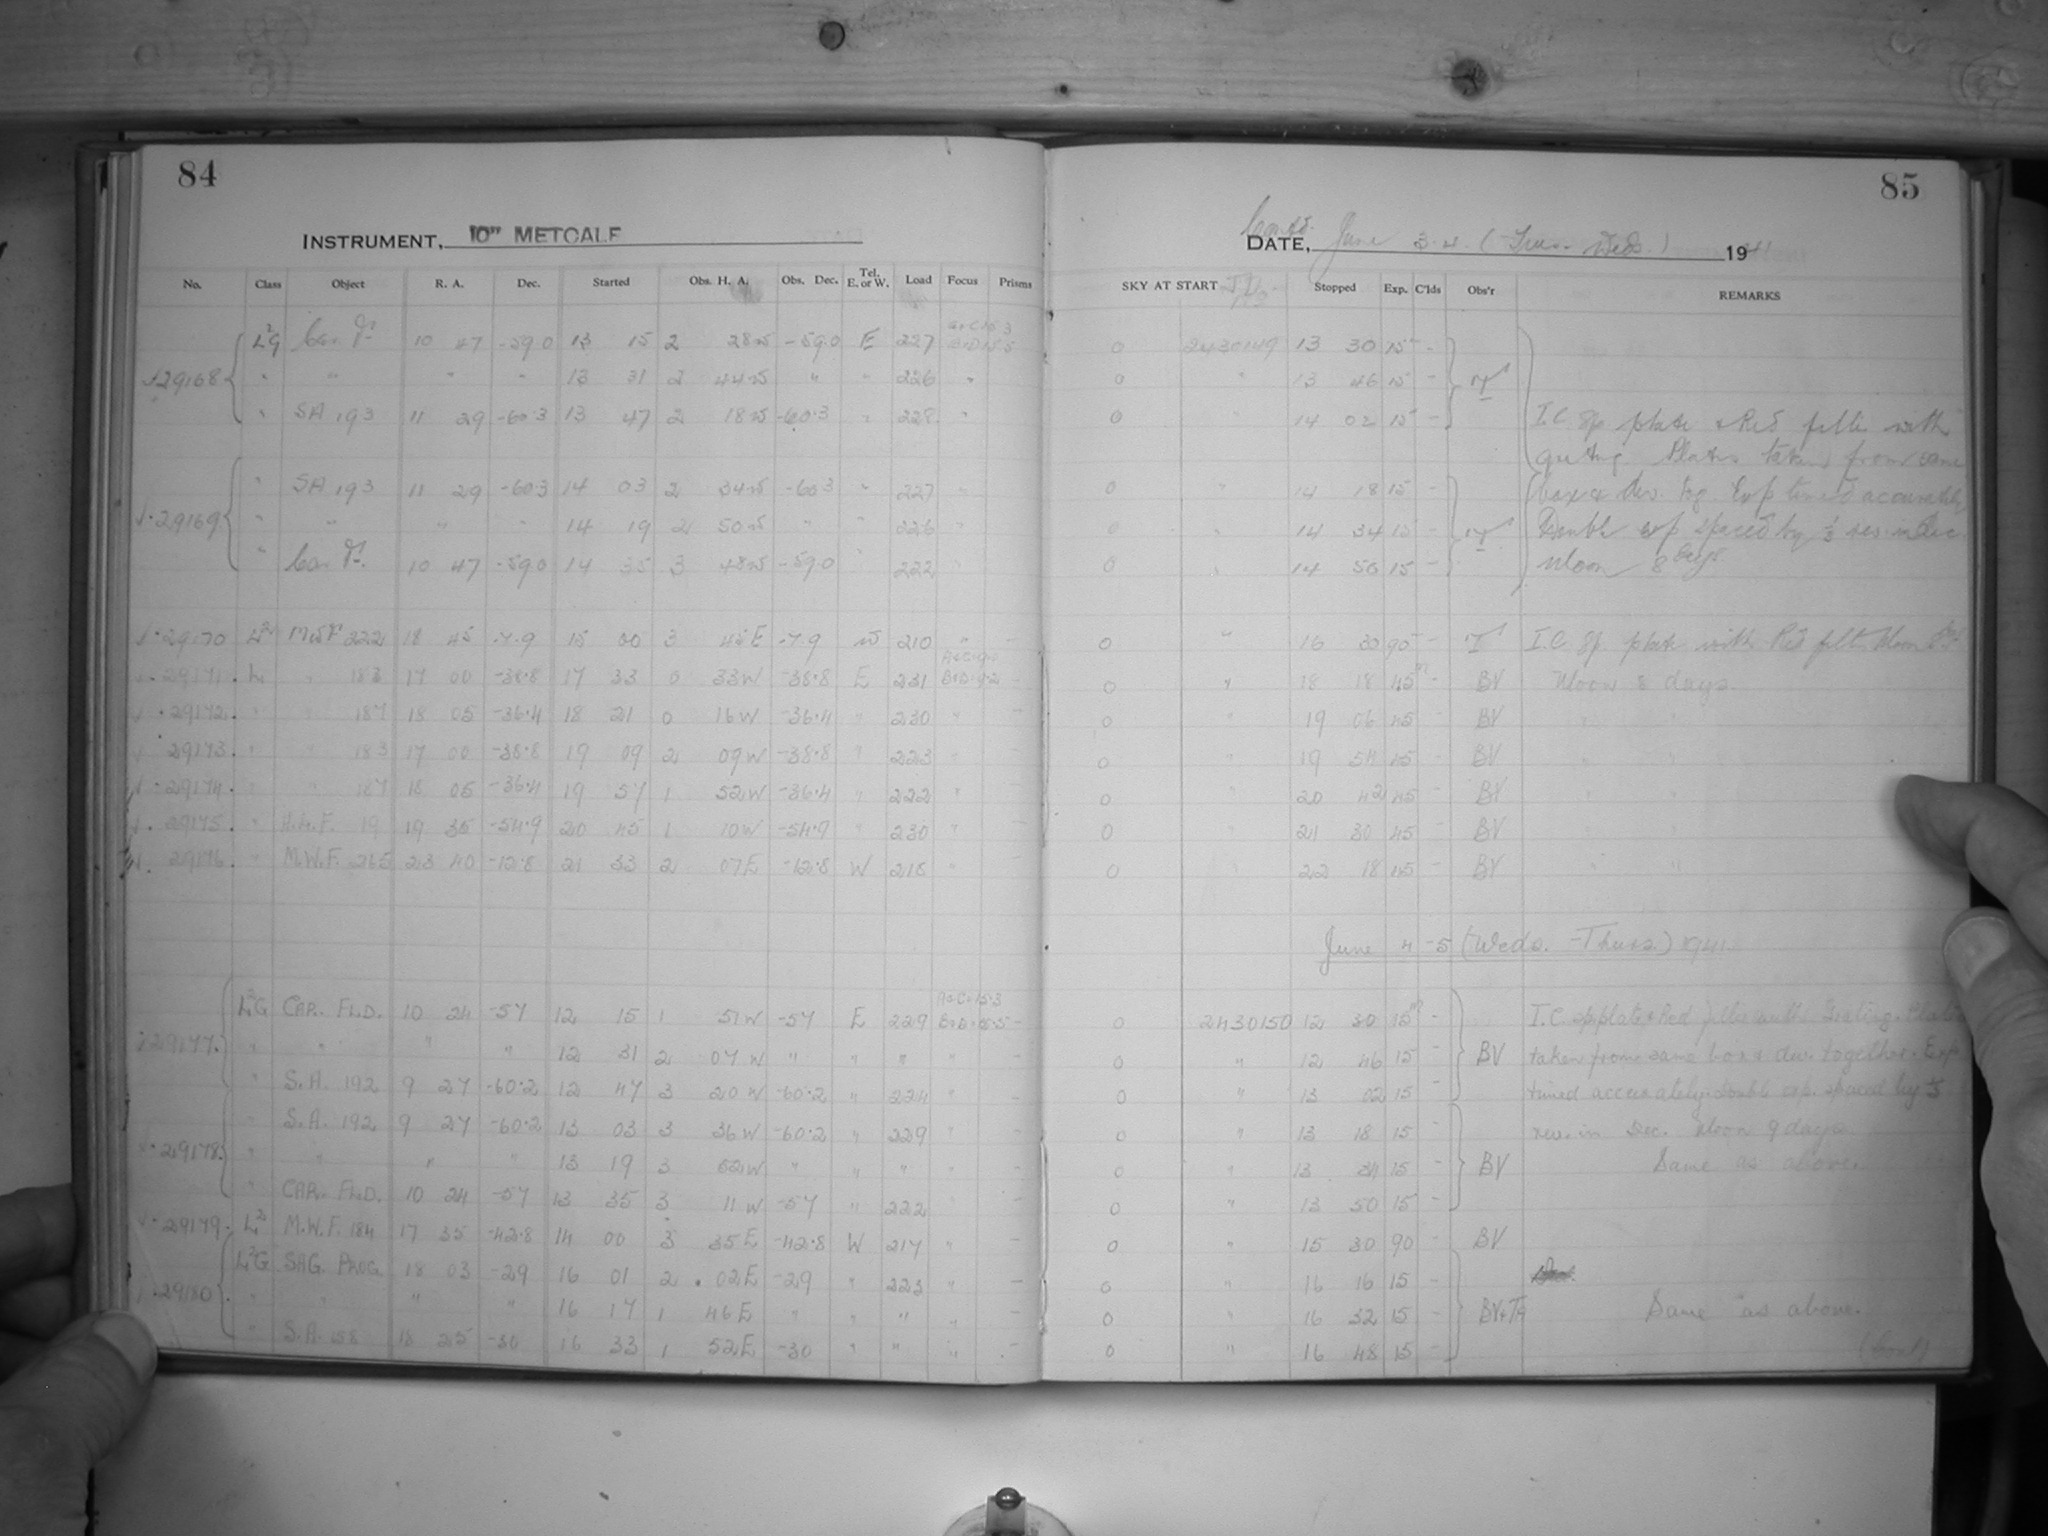 84
INSTRUMENT, 10" METCALF
No. Class Object R. A. Dec. Started Obs. H. A. Obs. Dec. Tel. E. or W. Load Focus Prisms
L²G Car 10 47 -59.0 13 15 2 28W -59.0 E 227
29168 " " " " 13 31 2 44W " " 226 "
" SA 193 11 29 -60.3 13 47 2 18W -60.3 " 228 "
" SA 193 11 29 -60.3 14 03 2 34W -60.3 " 227 "
29169 " " " " 14 19 2 50W " " 226 "
" Car 10 47 -59.0 14 35 3 48W -59.0 " 222 "
29170 L² MWF 222 18 45 -7.9 15 00 3 45E -7.9 W 210 " -
29171 L " 183 17 00 -38.8 17 33 0 33W -38.8 E 231 -
29172 " " 187 18 05 -36.4 18 21 0 16W -36.4 " 230 " -
29173 " " 183 17 00 -38.8 19 09 2 09W -38.8 " 223 " -
29174 " " 187 18 05 -36.4 19 57 1 52W -36.4 " 222 " -
29175 " 19 19 35 -54.9 20 45 1 10W -54.9 " 230 " -
29176 " M.W.F. 265 23 40 -12.8 21 33 2 07E -12.8 W 218 " -
A+C=15.3
L²G CAR. FLD. 10 24 -57 12 15 1 51W -57 E 229 B+D=15.5 -
29177 " " " " 12 31 2 07W " " " " -
" S.A. 192 9 27 -60.2 12 47 3 20W -60.2 " 224 " -
" S.A. 192 9 27 -60.2 13 03 3 36W -60.2 " 229 " -
29178 " " " " 13 19 3 52W " " " " -
" CAR. FLD. 10 24 -57 13 35 3 11W -57 " 222 " -
29179 L² M.W.F. 184 17 35 -42.8 14 00 3 35E -42.8 W 217 " -
L²G SAG. PROG. 18 03 -29 16 01 2 02E -29 " 223 " -
29180 " " " " 16 17 1 46E " " " " -
" S.A. 158 18 25 -30 16 33 1 52E -30 " " " -
85
Contd.
DATE, June 3-4. (Tues.- Weds.) 1941
SKY AT START J.D. Stopped Exp. C'lds Obs'r REMARKS
0 2430149 13 30 15 -
0 " 13 46 15 -
0 " 14 02 15 - I.C. Sp. plate & Red filter with
grating. Plates taken from same
0 " 14 18 15 - box & dev. tog. Exp timed accurately
0 " 14 34 15 - Double exp spaced by ½ rev. in Dec.
0 " 14 50 15 - Moon 8 days
0 " 16 30 90 - I.C. Sp. plate with Red filter Moon
0 " 18 18 45 - BV Moon 8 days.
0 " 19 06 45 - BV " "
0 " 19 54 45 - BV " "
0 " 20 42 45 - BV " "
0 " 21 30 45 - BV " "
0 " 22 18 45 - BV " "
June 4-5 (Weds. - Thurs.) 1941.
0 2430150 12 30 15 - I.C. sp. plate & Red filter with Grating. Plates
0 " 12 46 15 - BV taken from same box & dev. together. Exp
0 " 13 02 15 - timed accurately. Double exp. spaced by ½
0 " 13 18 15 - rev. in Dec. Moon 9 days
0 " 13 34 15 - BV Same as above.
0 " 13 50 15 -
0 " 15 30 90 - BV
0 " 16 16 15 -
0 " 16 32 15 - BV+ Same as above.
0 " 16 48 15 -
(Cont)